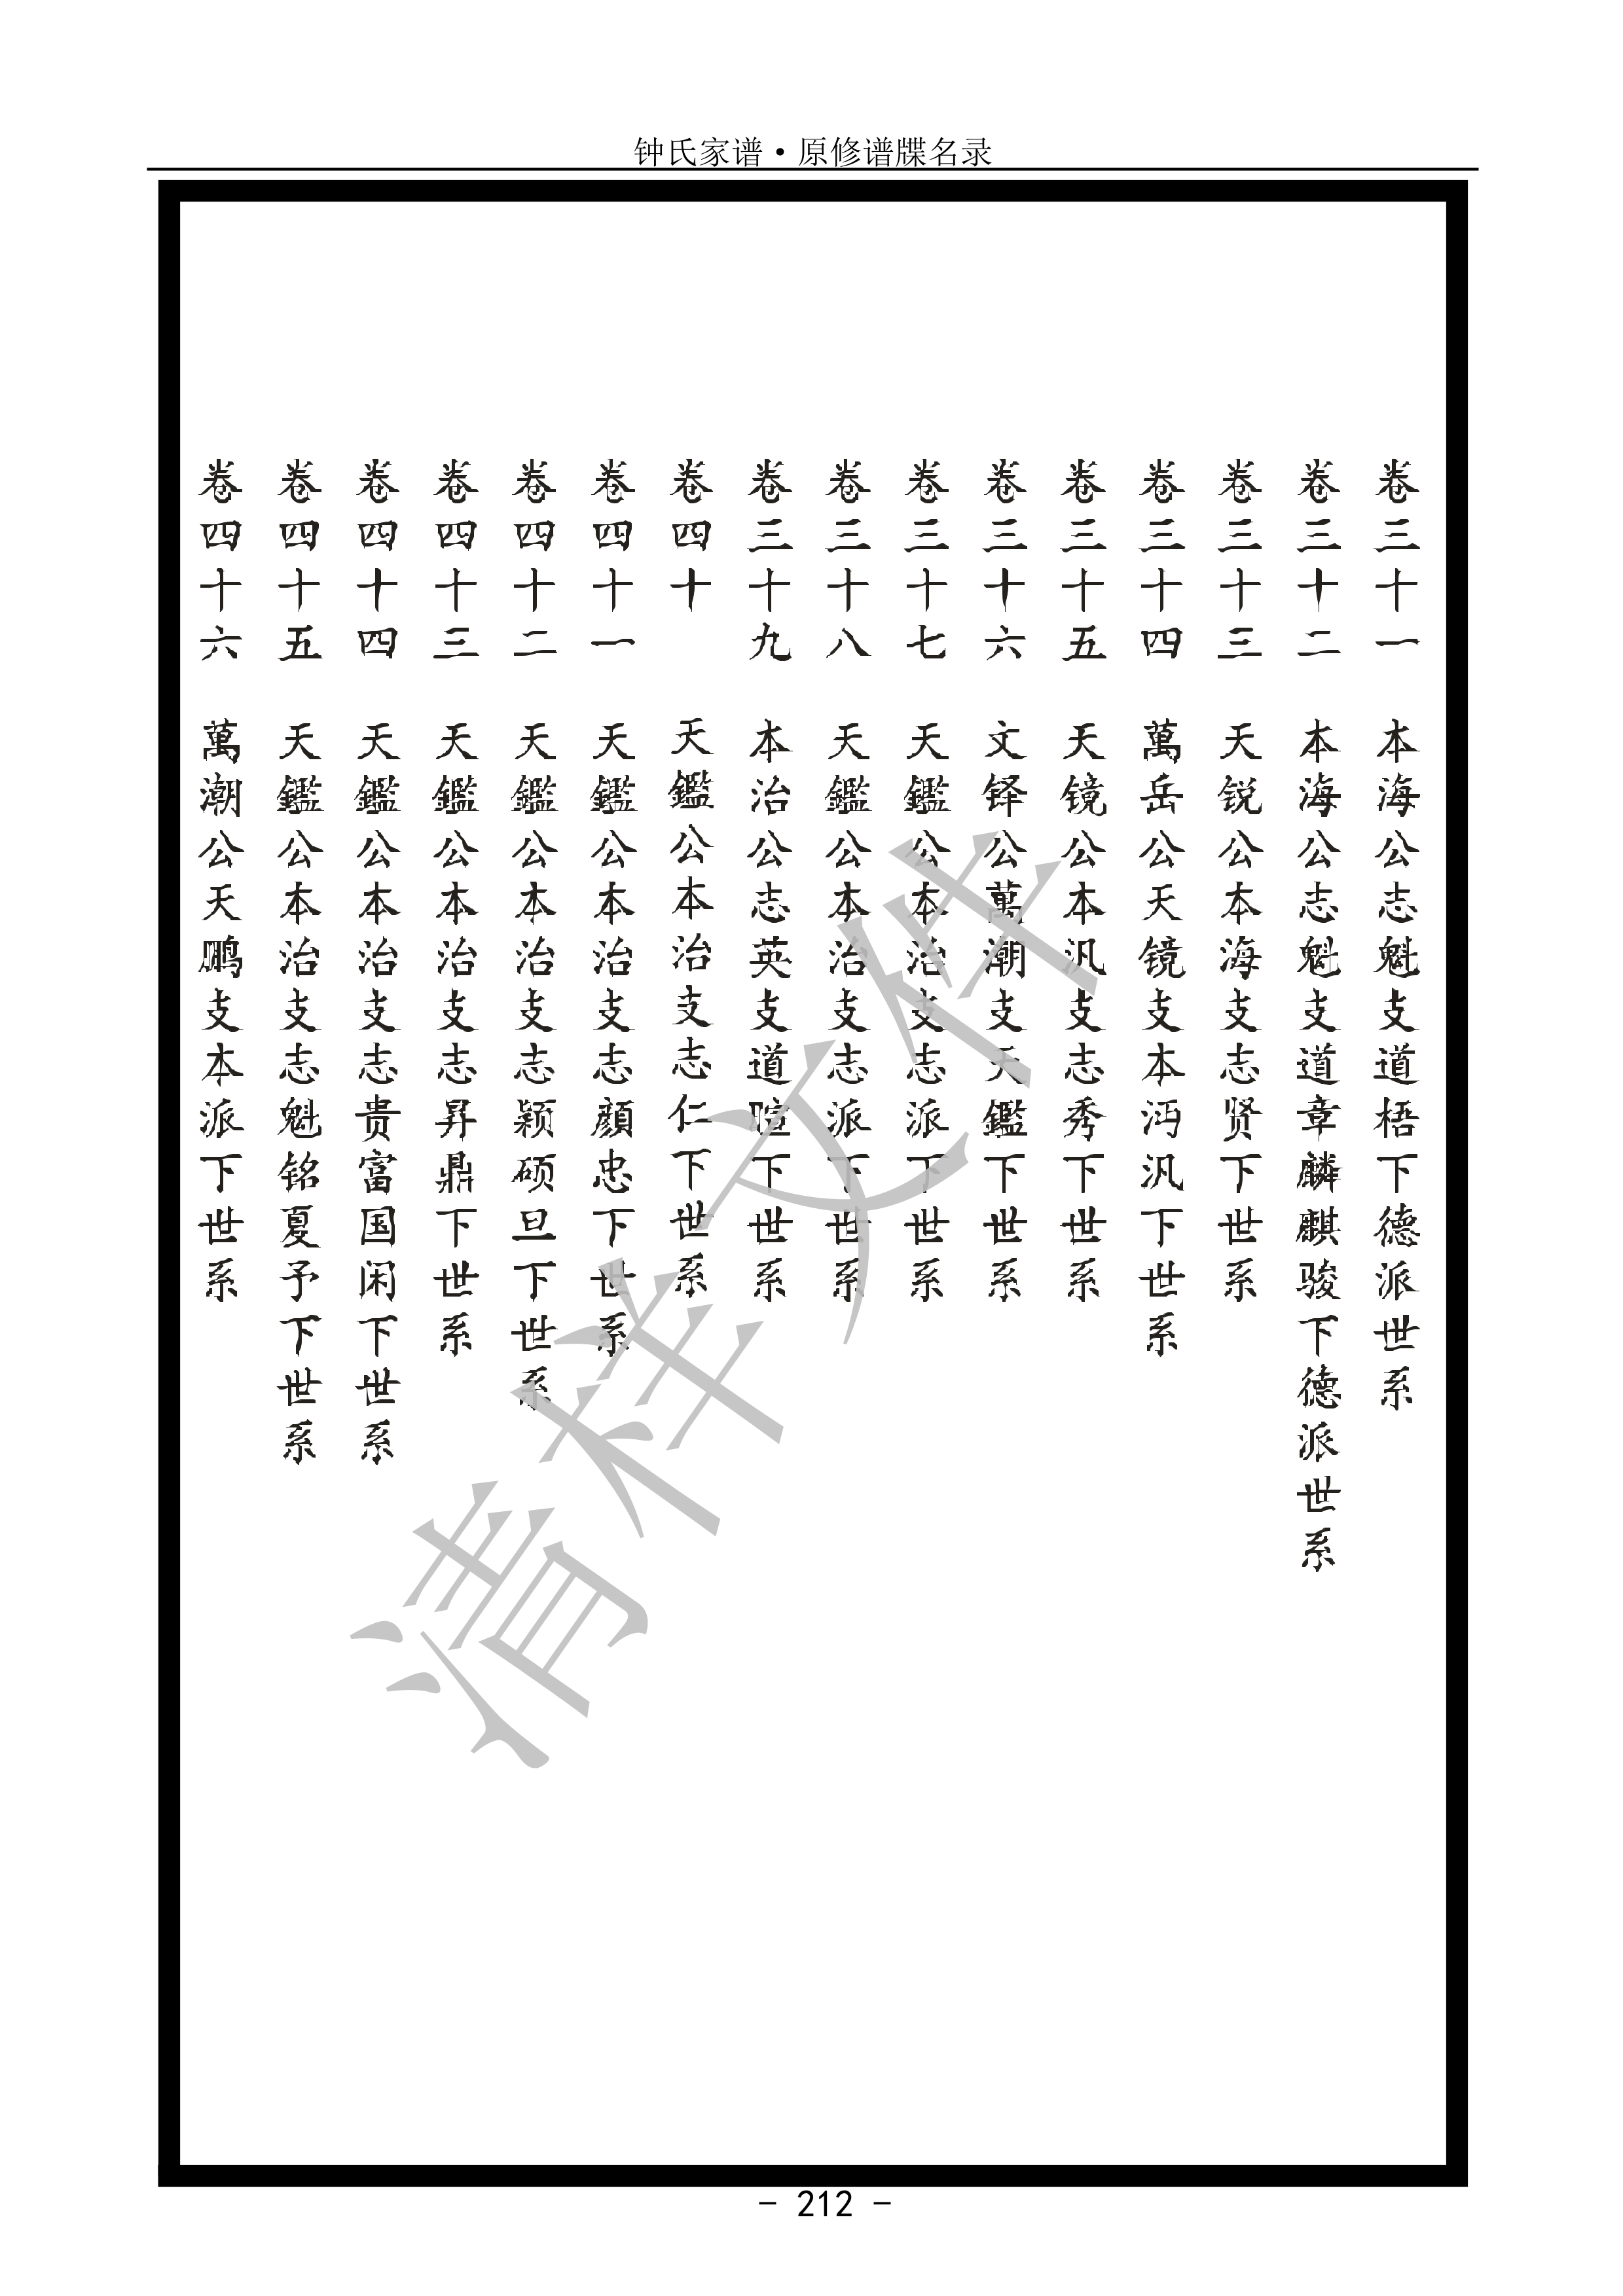 钟氏家谱·原修谱牒名录
卷三十一 本海公志魁支道梧下德派世系
卷三十二 本海公志魁支道章麟麒骏下德派世系
卷三十三 天锐公本海支志贤下世系
卷三十四 萬岳公天镜支本沔汎下世系
卷三十五 天镜公本汎支志秀下世系
卷三十六 文铎公萬潮支天鑑下世系
卷三十七 天鑑公本治支志派下世系
卷三十八 天鑑公本治支志派下世系
卷三十九 本治公志英支道暄下世系
卷四十 天鑑公本治支志仁下世系
卷四十一 天鑑公本治支志顔忠下世系
卷四十二 天鑑公本治支志颖硕旦下世系
卷四十三 天鑑公本治支志昇鼎下世系
卷四十四 天鑑公本治支志贵富国闲下世系
卷四十五 天鑑公本治支志魁铭夏予下世系
卷四十六 萬潮公天鹏支本派下世系
清样文件
- 212 -